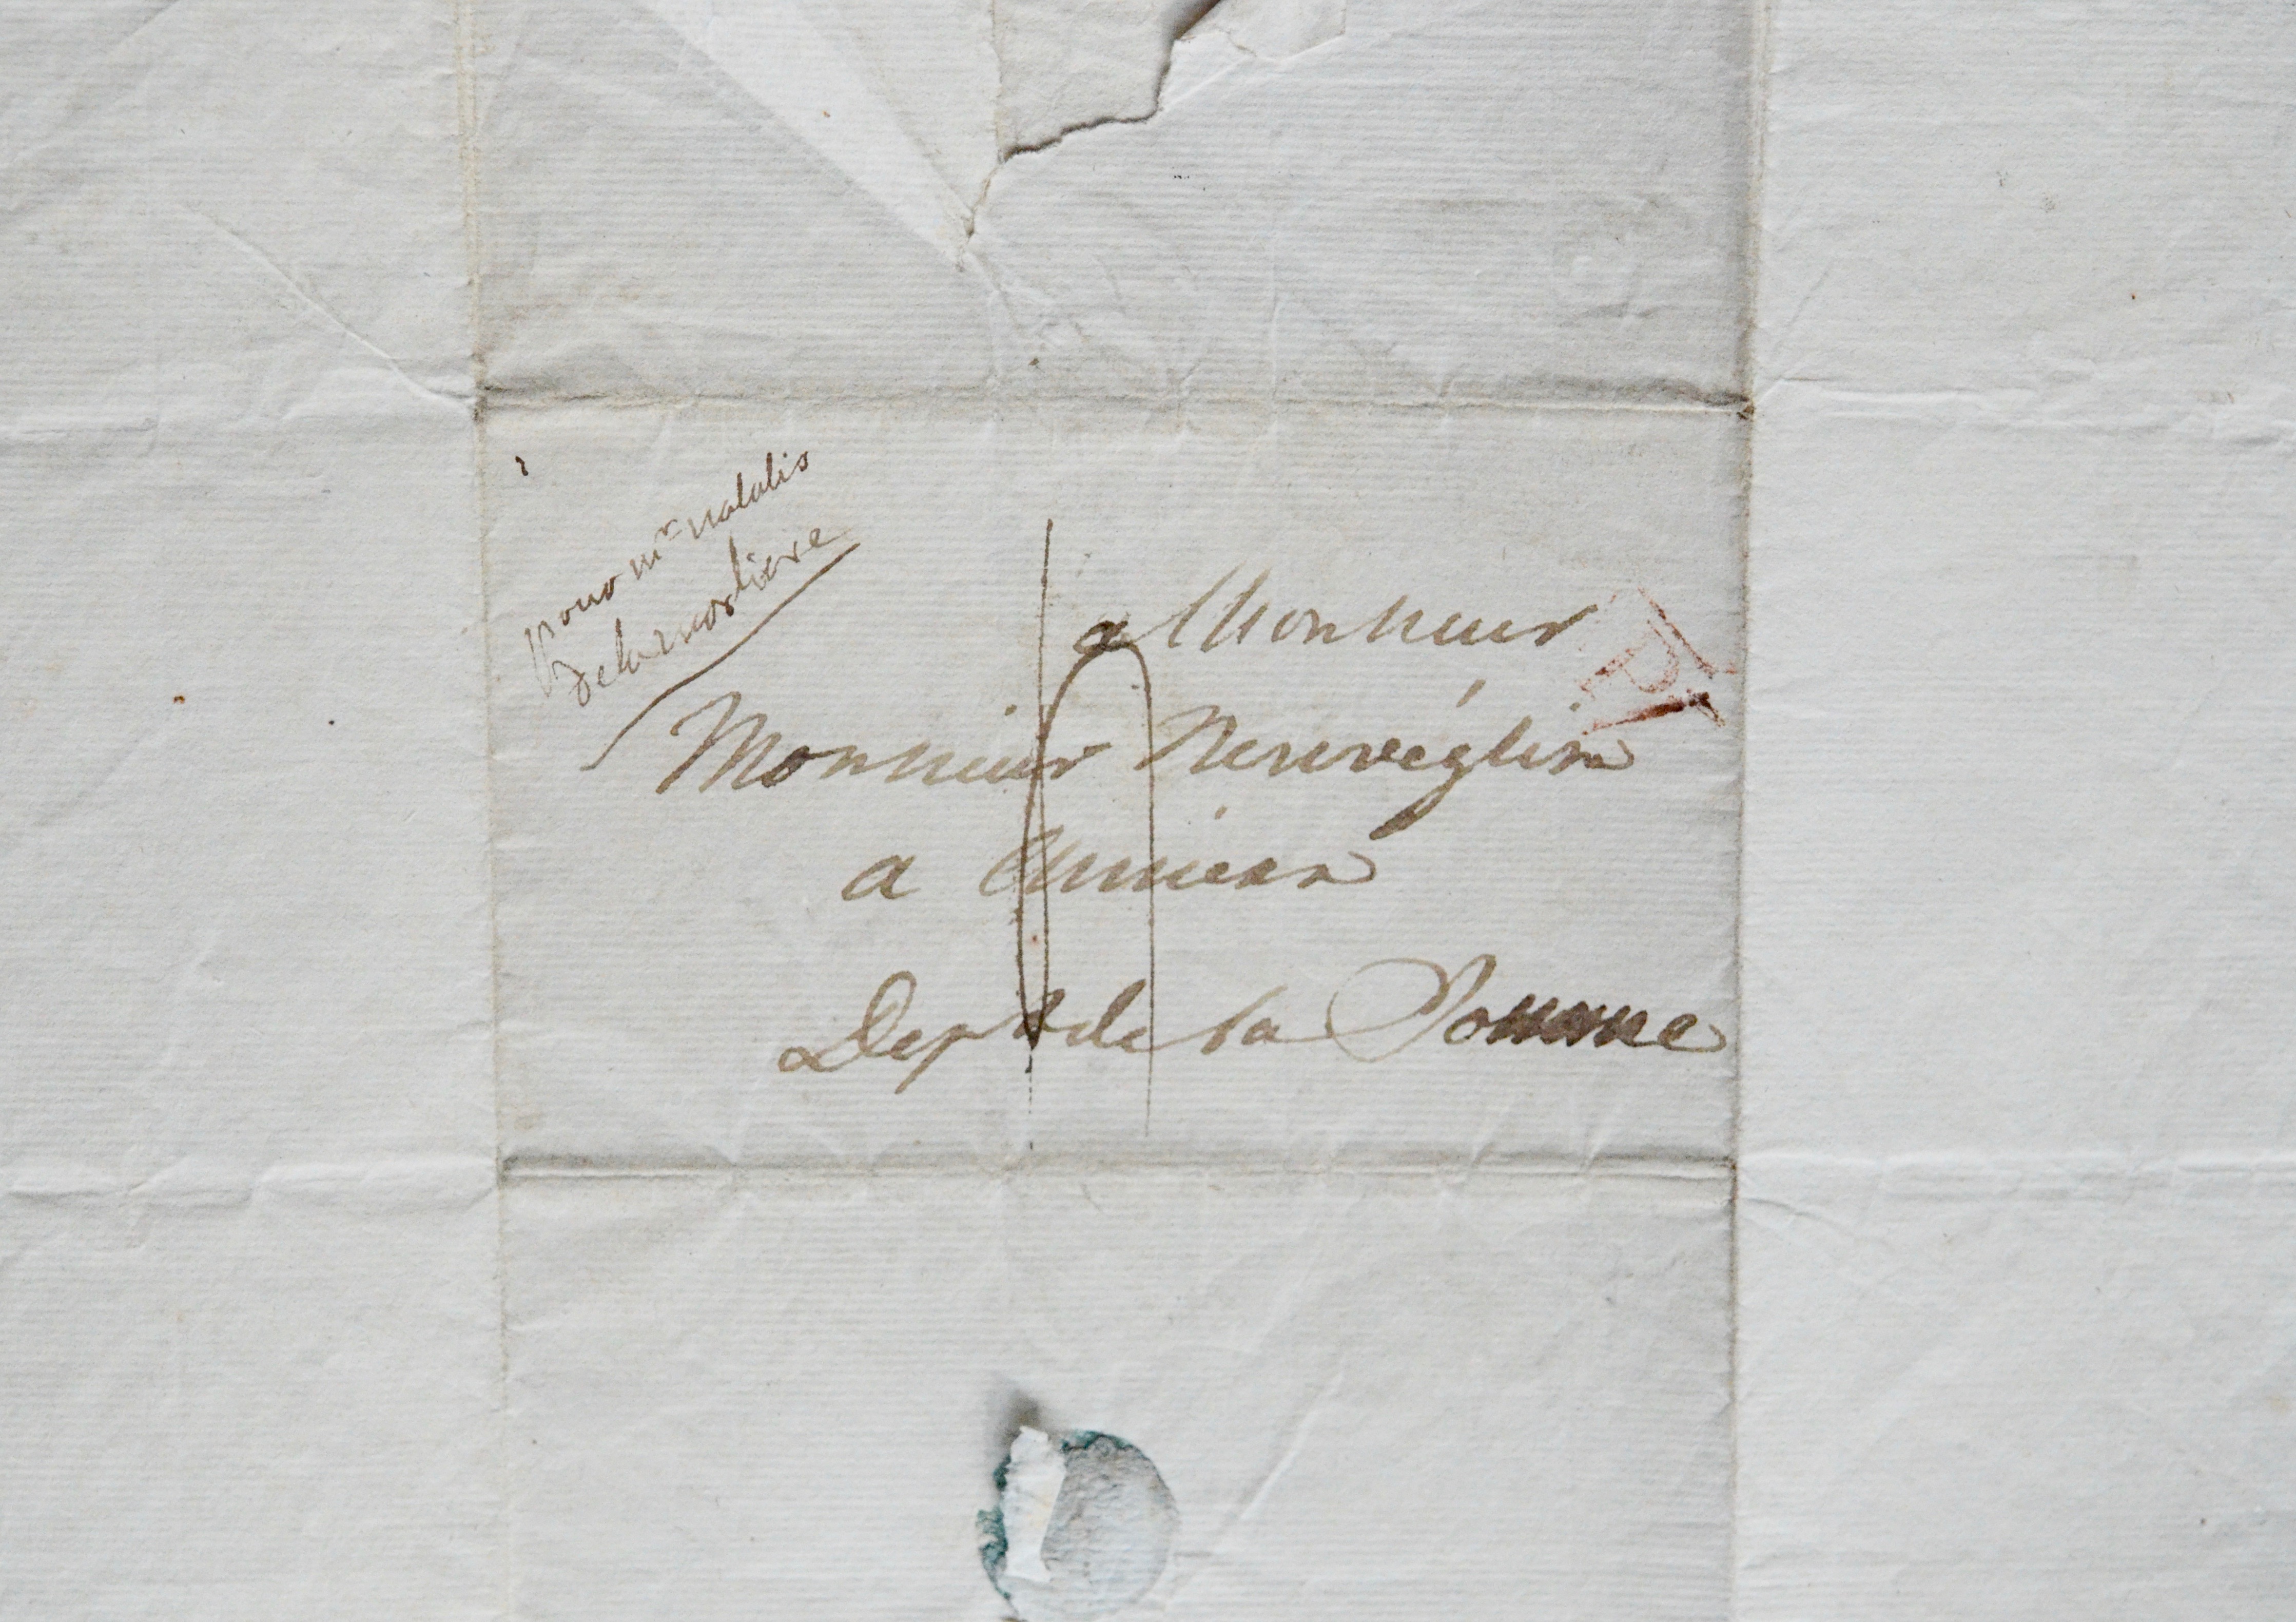 pour mr natalis
delamorliere
a Monsieur
Monsieur Neuvéglise
a Amiens
Dept de la Somme
P